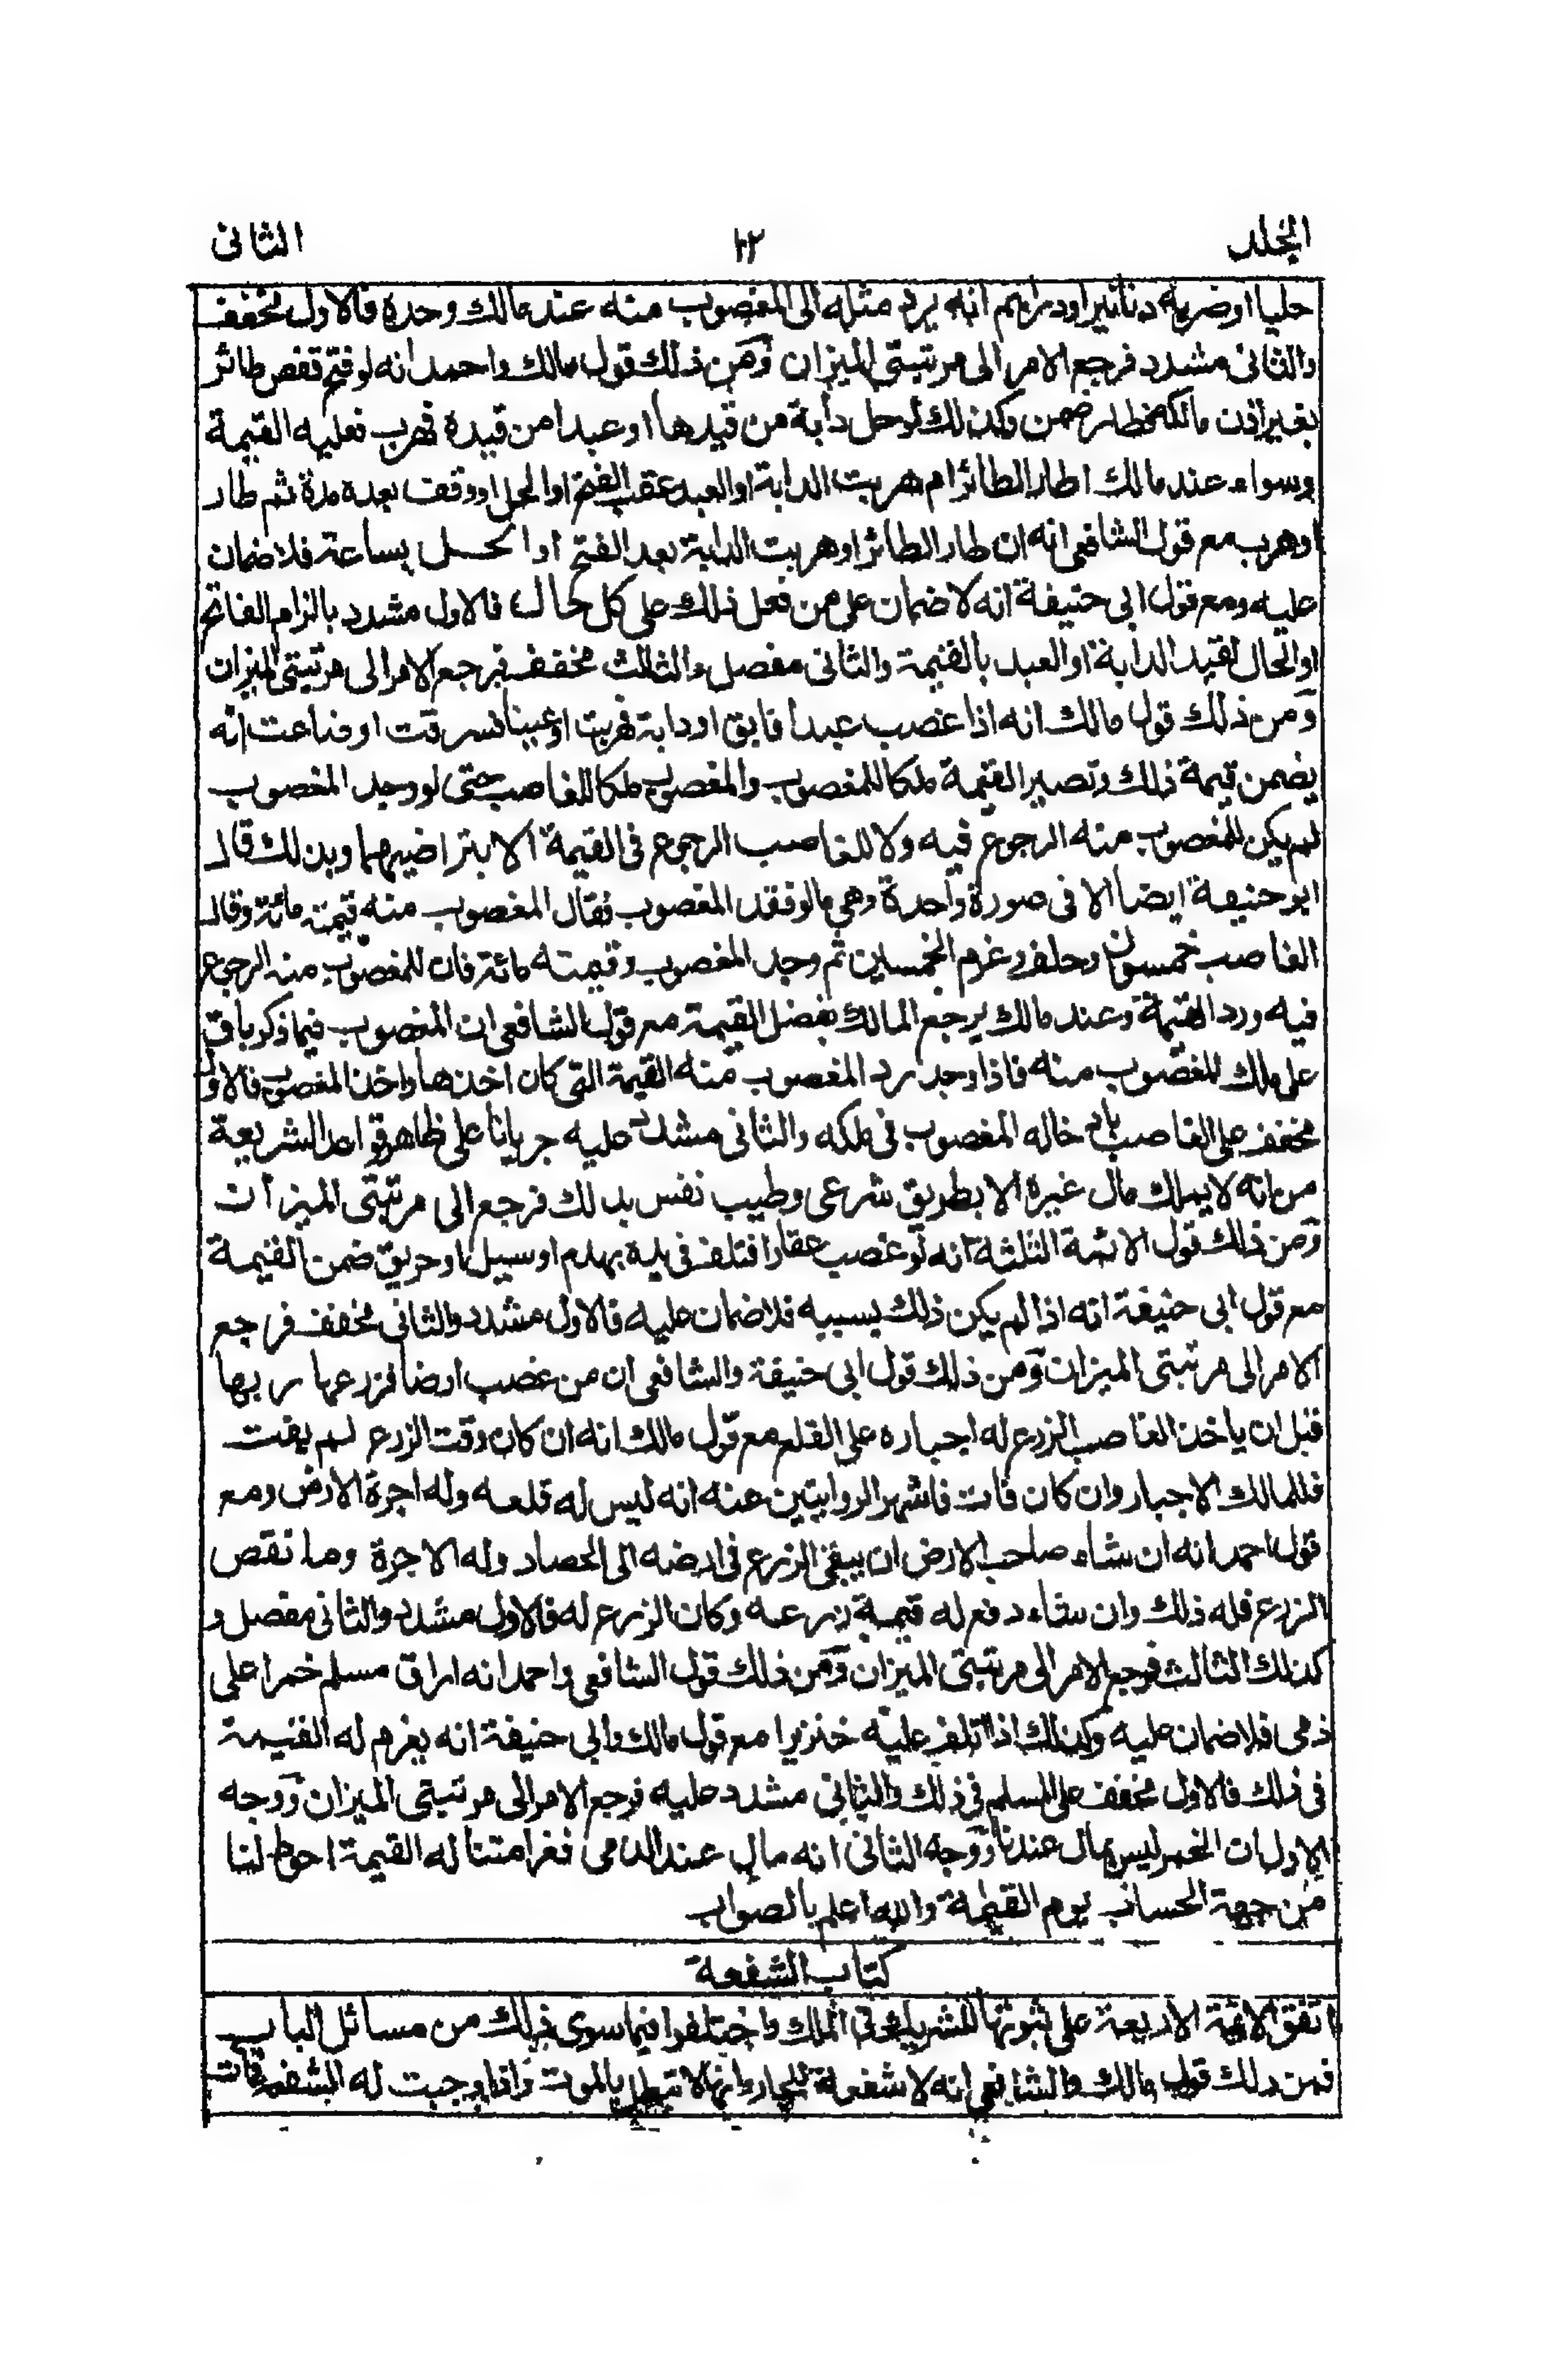 الجلد ٦٢ الثانى
حليا او ضربه دنانير او دراهم انه يرد مثله الى المغصوب منه عند مالك وحده فالاول مخفف
والثانى مشدد فرجع الامر الى مرتبتى الميزان ومن ذلك قول مالك واحمد انه لو فتح قفص طائر
بغير اذن مالكه فطار ضمن وكذلك لو حل دابة من قيدها او عبدا من قيده فهرب فعليه القيمة
وسواء عند مالك اطار الطائر ام هربت الدابة او العبد عقب الفتح او الحل او وقف بعده مدة ثم طار
او هرب مع قول الشافعى انه ان طار الطائر او هربت الدابة بعد الفتح او الحل بساعة فلا ضمان
عليه ومع قول ابى حنيفة انه لا ضمان على من فعل ذلك على كل حال فالاول مشدد بالزام الفاتح
او الحال لقيد الدابة او العبد بالقيمة والثانى مفصل والثالث مخفف فرجع الامر الى مرتبتى الميزان
ومن ذلك قول مالك انه اذا غصب عبدا فابق او دابة فهربت او عينا فسرقت او ضاعت انه
يضمن قيمة ذلك وتصير القيمة ملكا للمغصوب والمغصوب ملكا للغاصب حتى لو وجد المغصوب
لم يكن للمغصوب منه الرجوع فيه ولا للغاصب الرجوع فى القيمة الا بتراضيهما وبذلك قال
ابو حنيفة ايضا الا فى صورة واحدة وهى ما لو فقد المغصوب فقال المغصوب منه قيمته مائة وقال
الغاصب خمسون وحلف وغرم الخمسين ثم وجد المغصوب وقيمته مائة فان للمغصوب منه الرجوع
فيه ورد القيمة وعند مالك يرجع المالك بفضل القيمة مع قول الشافعى ان المغصوب فيما ذكر باق
على ملك المغصوب منه فاذا وجد رد المغصوب منه القيمة التى كان اخذها واخذ المغصوب فالاول
مخفف على الغاصب بادخاله المغصوب فى ملكه والثانى مشدد عليه جريانا على ظاهر قواعد الشريعة
من انه لا يملك مال غيره الا بطريق شرعى وطيب نفس بذلك فرجع الى مرتبتى الميزان
ومن ذلك قول الائمة الثلثة انه لو غصب عقارا فتلف فى يده بهدم او سيل او حريق ضمن القيمة
مع قول ابى حنيفة انه اذا لم يكن ذلك بسببه فلا ضمان عليه فالاول مشدد والثانى مخفف فرجع
الامر الى مرتبتى الميزان ومن ذلك قول ابى حنيفة والشافعى ان من غصب ارضا فزرعها ربها
قبل ان ياخذ الغاصب الزرع له اجباره على القلع مع قول مالك انه ان كان وقت الزرع لم يفت
فللمالك الاجبار وان كان فات فاشهر الروايتين عنه انه ليس له قلعه وله اجرة الارض ومع
قول احمد انه ان شاء صاحب الارض ان يبقى الزرع فى ارضه الى الحصاد وله الاجرة وما نقص
الزرع فله ذلك وان شاء دفع له قيمة زرعه وكان الزرع له فالاول مشدد والثانى مفصل و
كذلك الثالث فرجع الامر الى مرتبتى الميزان ومن ذلك قول الشافعى واحمد انه اراق مسلم خمرا على
ذمى فلا ضمان عليه وكذلك اذا اتلف عليه خنزيرا مع قول مالك وابى حنيفة انه يغرم له القيمة
فى ذلك فالاول مخفف على المسلم فى ذلك والثانى مشدد عليه فرجع الامر الى مرتبتى الميزان ووجه
الاول ان الخمر ليس بمال عندنا ووجه الثانى انه مال عند الذمى فغرامتنا له القيمة احوط لنا
من جهة الحساب يوم القيمة والله اعلم بالصواب
كتاب الشفعة
اتفق الائمة الاربعة على ثبوتها للشريك فى الملك واختلفوا فيما سوى ذلك من مسائل الباب
فمن ذلك قول مالك والشافعى انه لا شفعة للجار وانها لا تبطل بالموت واذا وجبت له الشفعة فمات